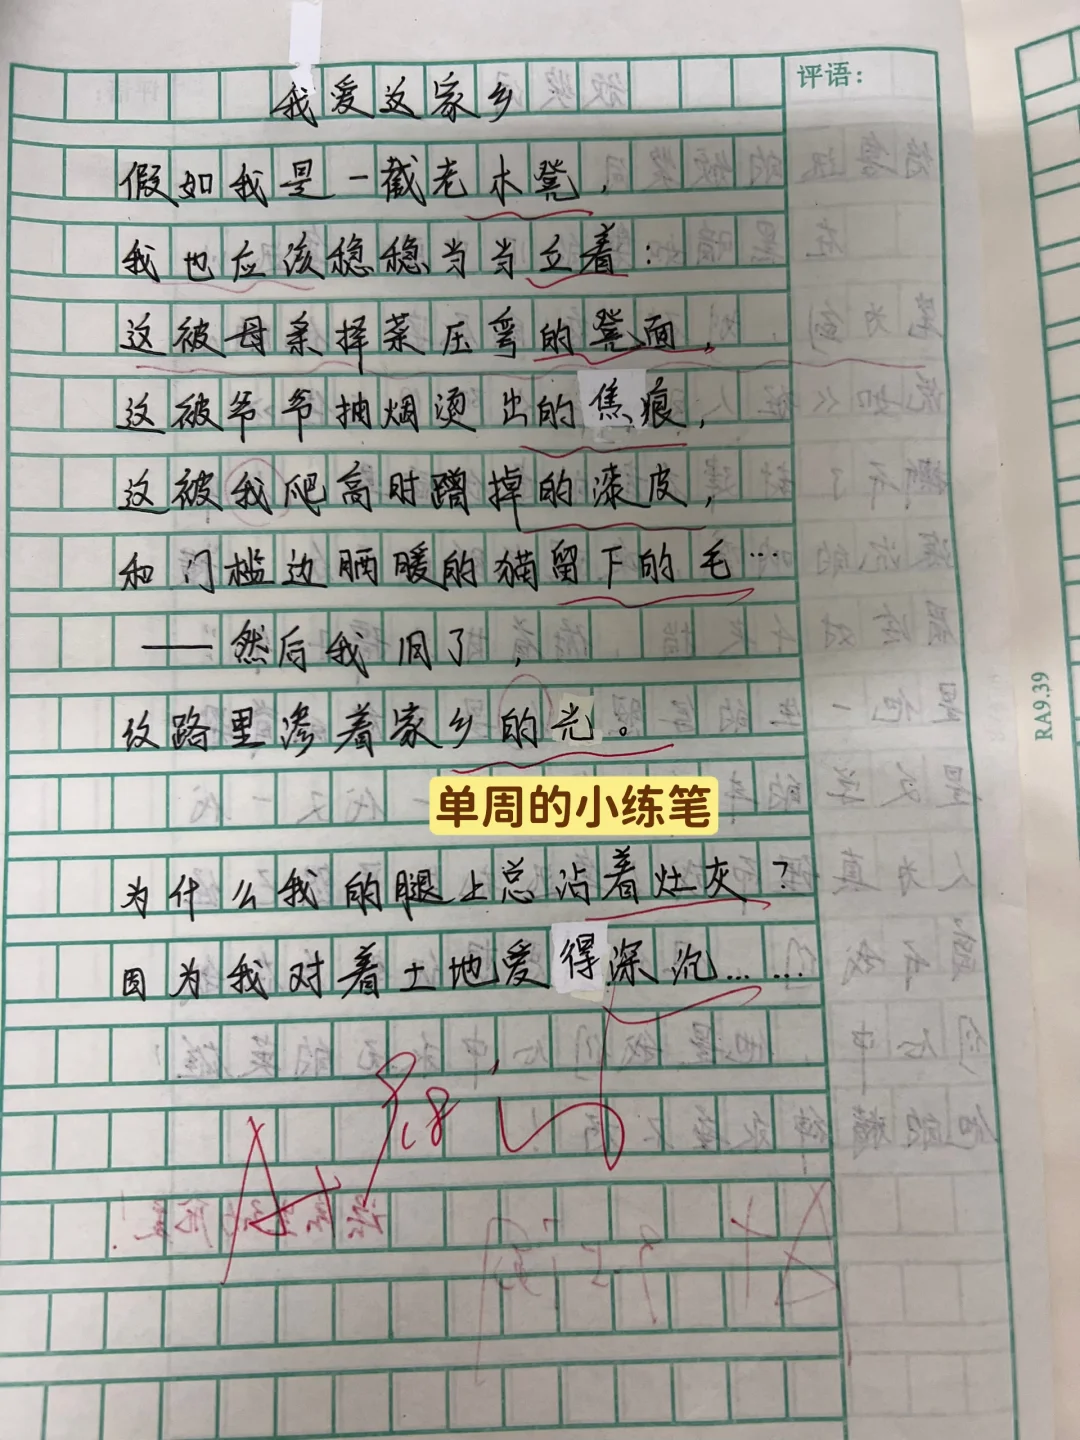 评语:
我爱这家乡
假如我是一截老木凳，
我也应该稳稳当当立着：
这被母亲择菜压弯的凳面，
这被爷爷抽烟烫出的焦痕，
这被我爬高时蹭掉的漆皮，
和门槛边晒暖的猫留下的毛…
——然后我旧了，
纹路里渗着家乡的光。
单周的小练笔
为什么我的腿上总沾着灶灰？
因为我对着土地爱得深沉……
RA9.39